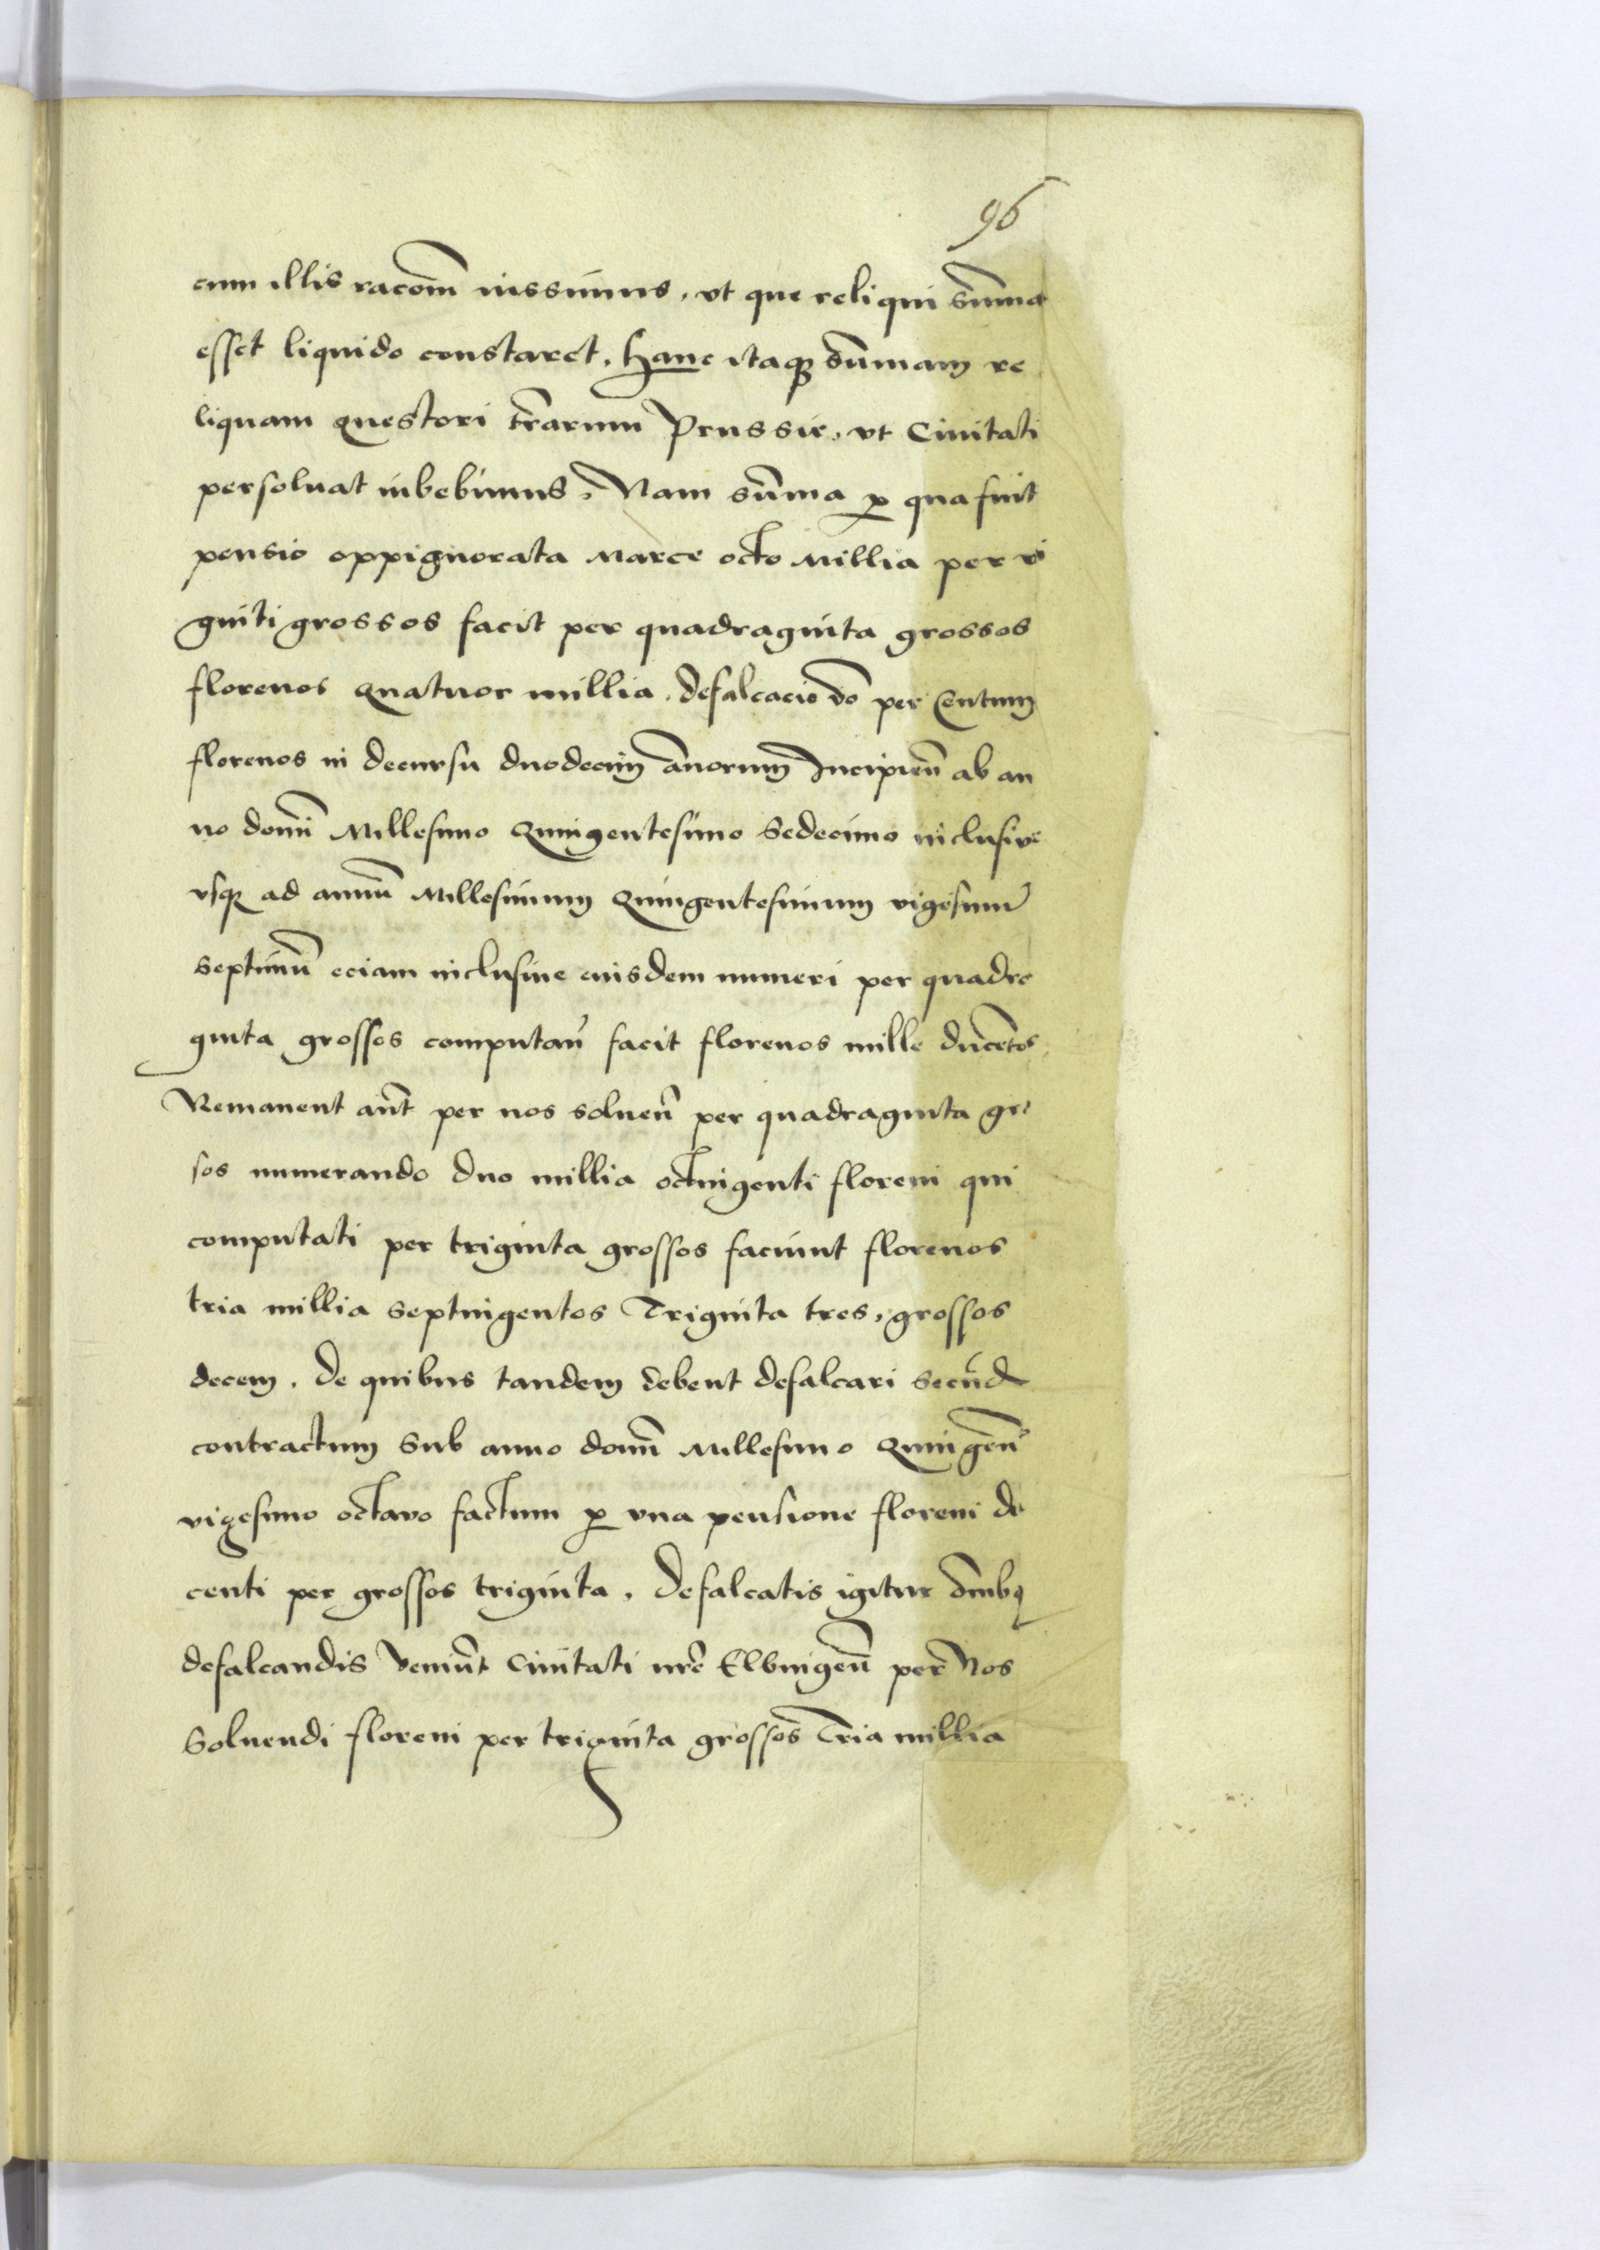 96
cum illis racoem iussimus, vt que reliqui suma
esset liquido constaret. Hanc itaqz sumam re
liquam Questori trarum Prussie, vt Ciuitati
persoluat iubebimus. Nam suma p qua fuit
pensio oppignorata Marce octo Millia per vi
ginti grossos facit per quadraginta grossos
florenos Quatuor millia. defalcacio vo per Centum
florenos in decursu duodecim anorum Incipien ab an
no domi Millesimo Quingentesimo Sedecimo inclusive
vsqz ad annu Millesimum Quingentesimum vigesimu
septimu eciam inclusiue eiusdem numeri per quadra
ginta grossos computan facit florenos mille ducetos
Remanent aut per nos soluen per quadraginta gro
sos numerando duo millia octuigenti floreni qui
computati per triginta grossos faciunt florenos
tria millia septuigentos Triginta tres, grossos
decem. de quibus tandem debent defalcari secund
contractum Sub anno domi Millesimo Quingen
vigesimo octavo factum p vna pensione floreni du
centi per grossos triginta. Defalcatis igitur omibq
defalcandis Veniut Ciuitati nre Elbingen per Nos
Soluendi floreni per triginta grossos Tria millia